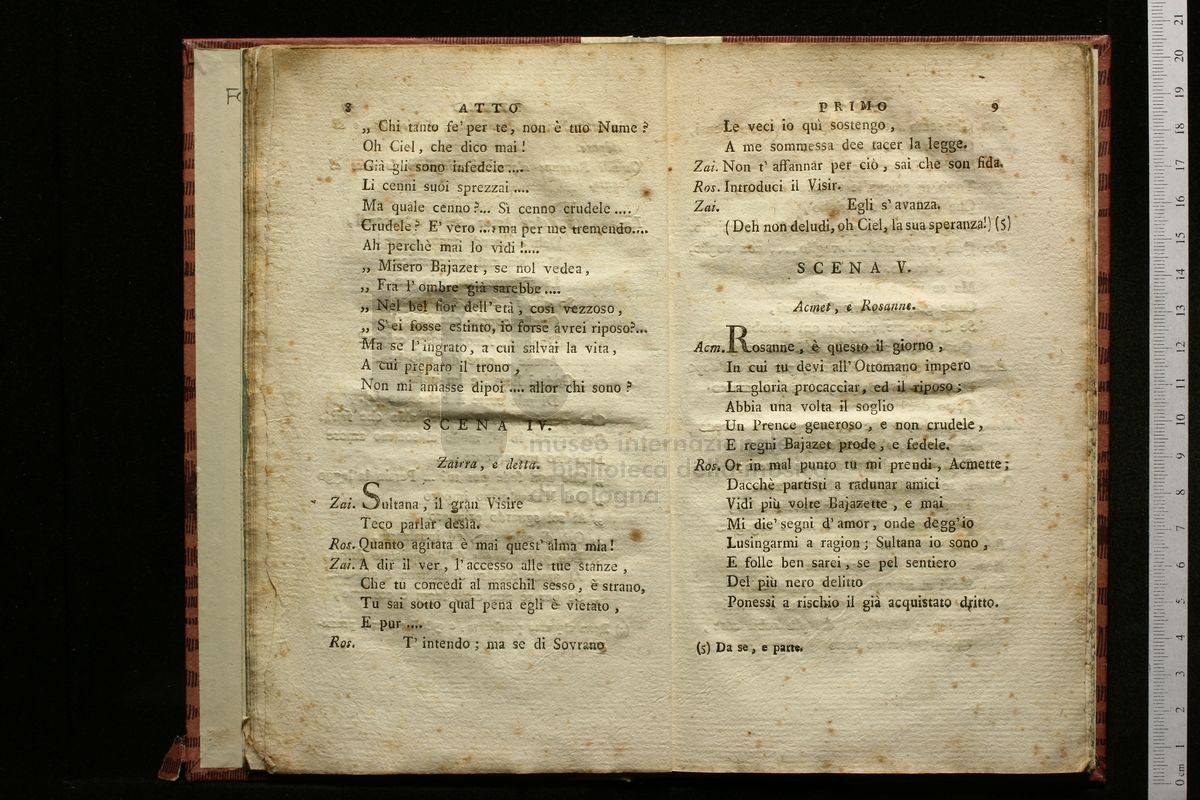 8 ATTO
„ Chi tanto fe' per te, non è tuo Nume?
Oh Ciel, che dico mai!
Già gli sono infedele....
Li cenni suoi sprezzai....
Ma quale cenno?... Sì cenno crudele....
Crudele? E' vero ...; ma per me tremendo....
Ah perchè mai lo vidi!....
„ Misero Bajazet, se nol vedea,
„ Fra l'ombre già sarebbe....
„ Nel bel fior dell'età, così vezzoso,
„ S'ei fosse estinto, io forse avrei riposo?...
Ma se l'ingrato, a cui salvai la vita,
A cui preparo il trono,
Non mi amasse dipoi.... allor chi sono?
SCENA IV.
Zaira, e detta.
Zai. Sultana, il gran Visire
Teco parlar desìa.
Ros. Quanto agitata è mai quest'alma mia!
Zai. A dir il ver, l'accesso alle tue stanze,
Che tu concedi al maschil sesso, è strano,
Tu sai sotto qual pena egli è vietato,
E pur....
Ros. T'intendo; ma se di Sovrano
PRIMO 9
Le veci io quì sostengo,
A me sommessa dee tacer la legge.
Zai. Non t'affannar per ciò, sai che son fida.
Ros. Introduci il Visir.
Zai. Egli s'avanza.
(Deh non deludi, oh Ciel, la sua speranza!) (5)
SCENA V.
Acmet, e Rosanne.
Acm. Rosanne, è questo il giorno,
In cui tu devi all'Ottomano impero
La gloria procacciar, ed il riposo;
Abbia una volta il soglio
Un Prence generoso, e non crudele,
E regni Bajazet prode, e fedele.
Ros. Or in mal punto tu mi prendi, Acmette;
Dacchè partisti a radunar amici
Vidi più volte Bajazette, e mai
Mi die' segni d'amor, onde degg'io
Lusingarmi a ragion; Sultana io sono,
E folle ben sarei, se pel sentiero
Del più nero delitto
Ponessi a rischio il già acquistato dritto.
(5) Da se, e parte.
museo internazionale
e biblioteca della musica
di bologna
0 cm 1 2 3 4 5 6 7 8 9 10 11 12 13 14 15 16 17 18 19 20 21